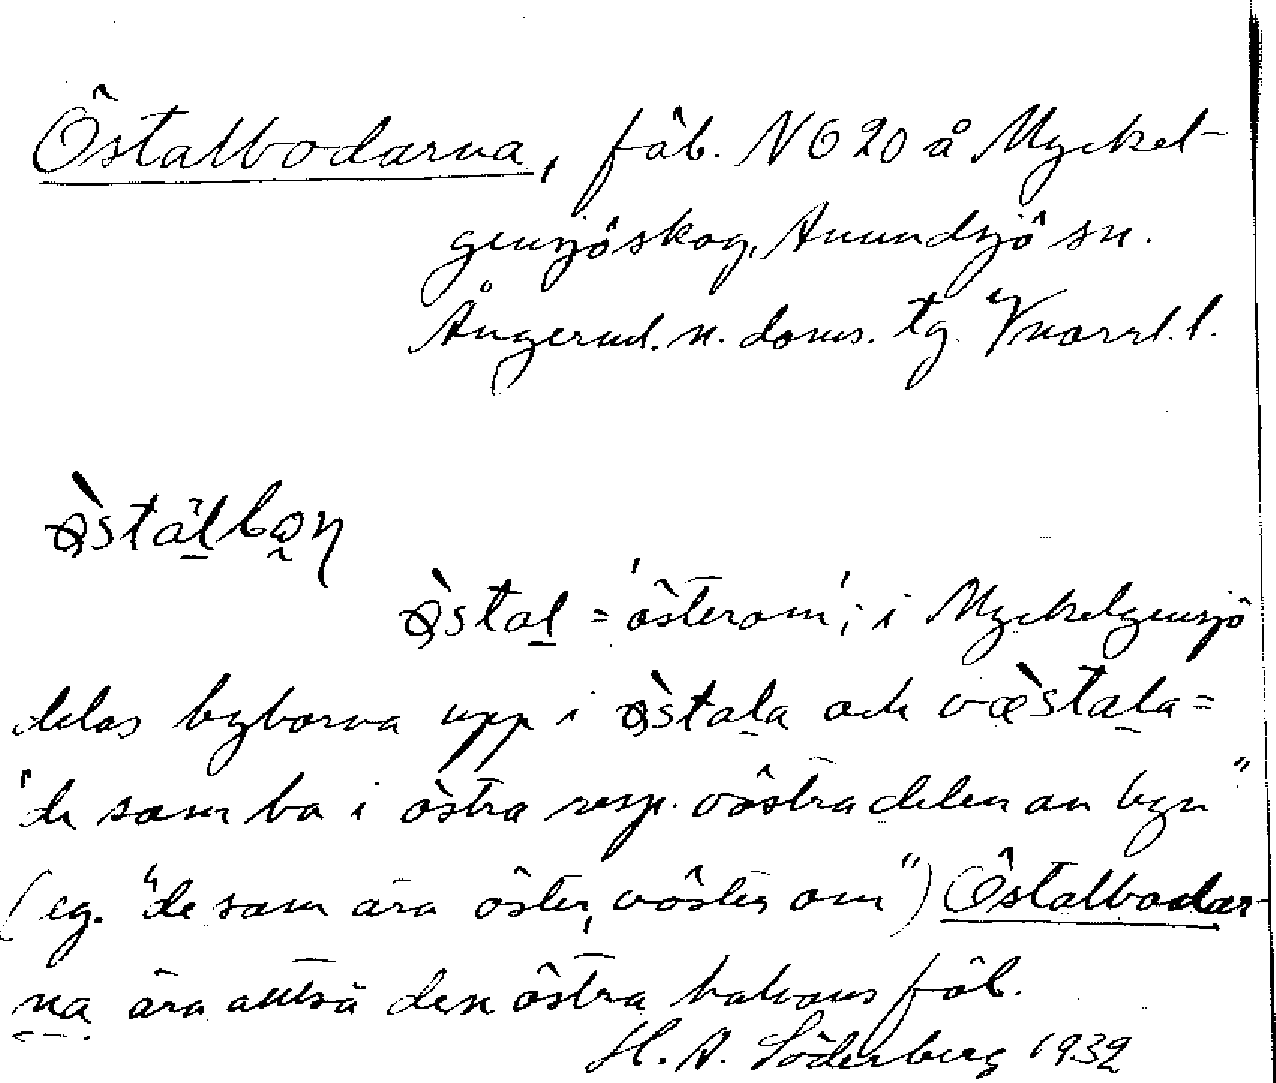 Östalbodarna, fäb. N 620 å Myckel-
gensjöskog, Anundsjö sn.
Ångerml. n. doms. tg. Vnorrl. l.
östal = 'österom'; i Myckelgensjö
delas byborna upp i östala och væstala =
"de som bo i östra resp. västra delen av byn"
(eg. "de som äro öster, väster om") Östalbodar-
na äro alltså den östra halvans fäb.
H. A. Söderberg 1932